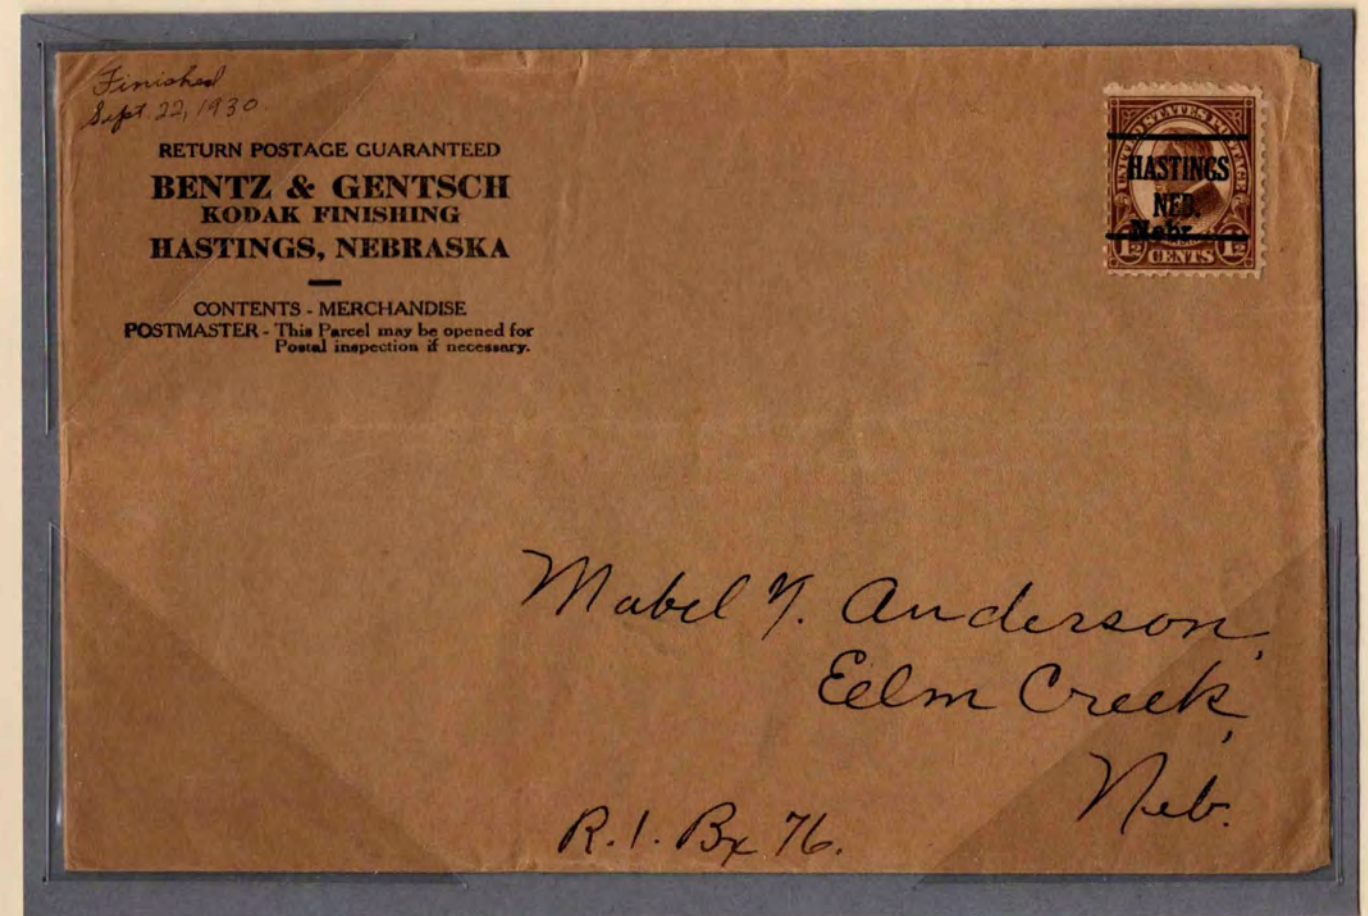 Finished
Sept. 22, 1930
RETURN POSTAGE GUARANTEED
BENTZ & GENTSCH
KODAK FINISHING
HASTINGS, NEBRASKA
CONTENTS - MERCHANDISE
POSTMASTER - This Parcel may be opened for
Postal inspection if necessary.
UNITED STATES POSTAGE
HASTINGS
NEB.
Nebr.
1½ CENTS 1½
Mabel Y. Anderson,
Eelm Creek,
Neb.
R.1. Bx 76.